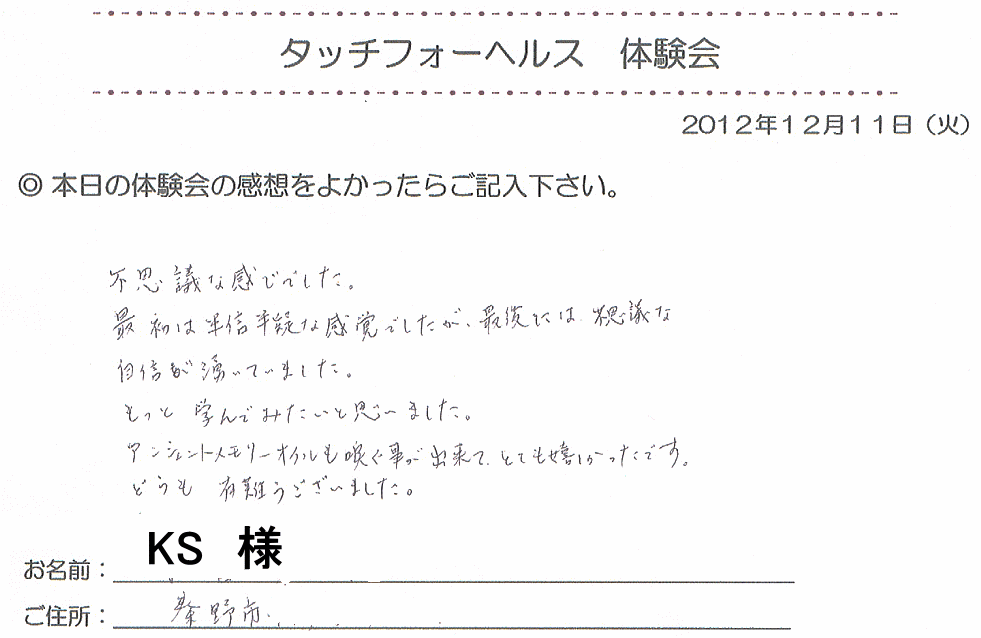 タッチフォーヘルス 体験会
2012年12月11日（火）
◎ 本日の体験会の感想をよかったらご記入下さい。
不思議な感じでした。
最初は半信半疑な感覚でしたが、最後には不思議な
自信が湧いていました。
もっと学んでみたいと思いました。
アンシェントメモリーオイルも嗅ぐ事が出来て、とても嬉しかったです。
どうも有難うございました。
お名前：KS 様
ご住所：秦野市